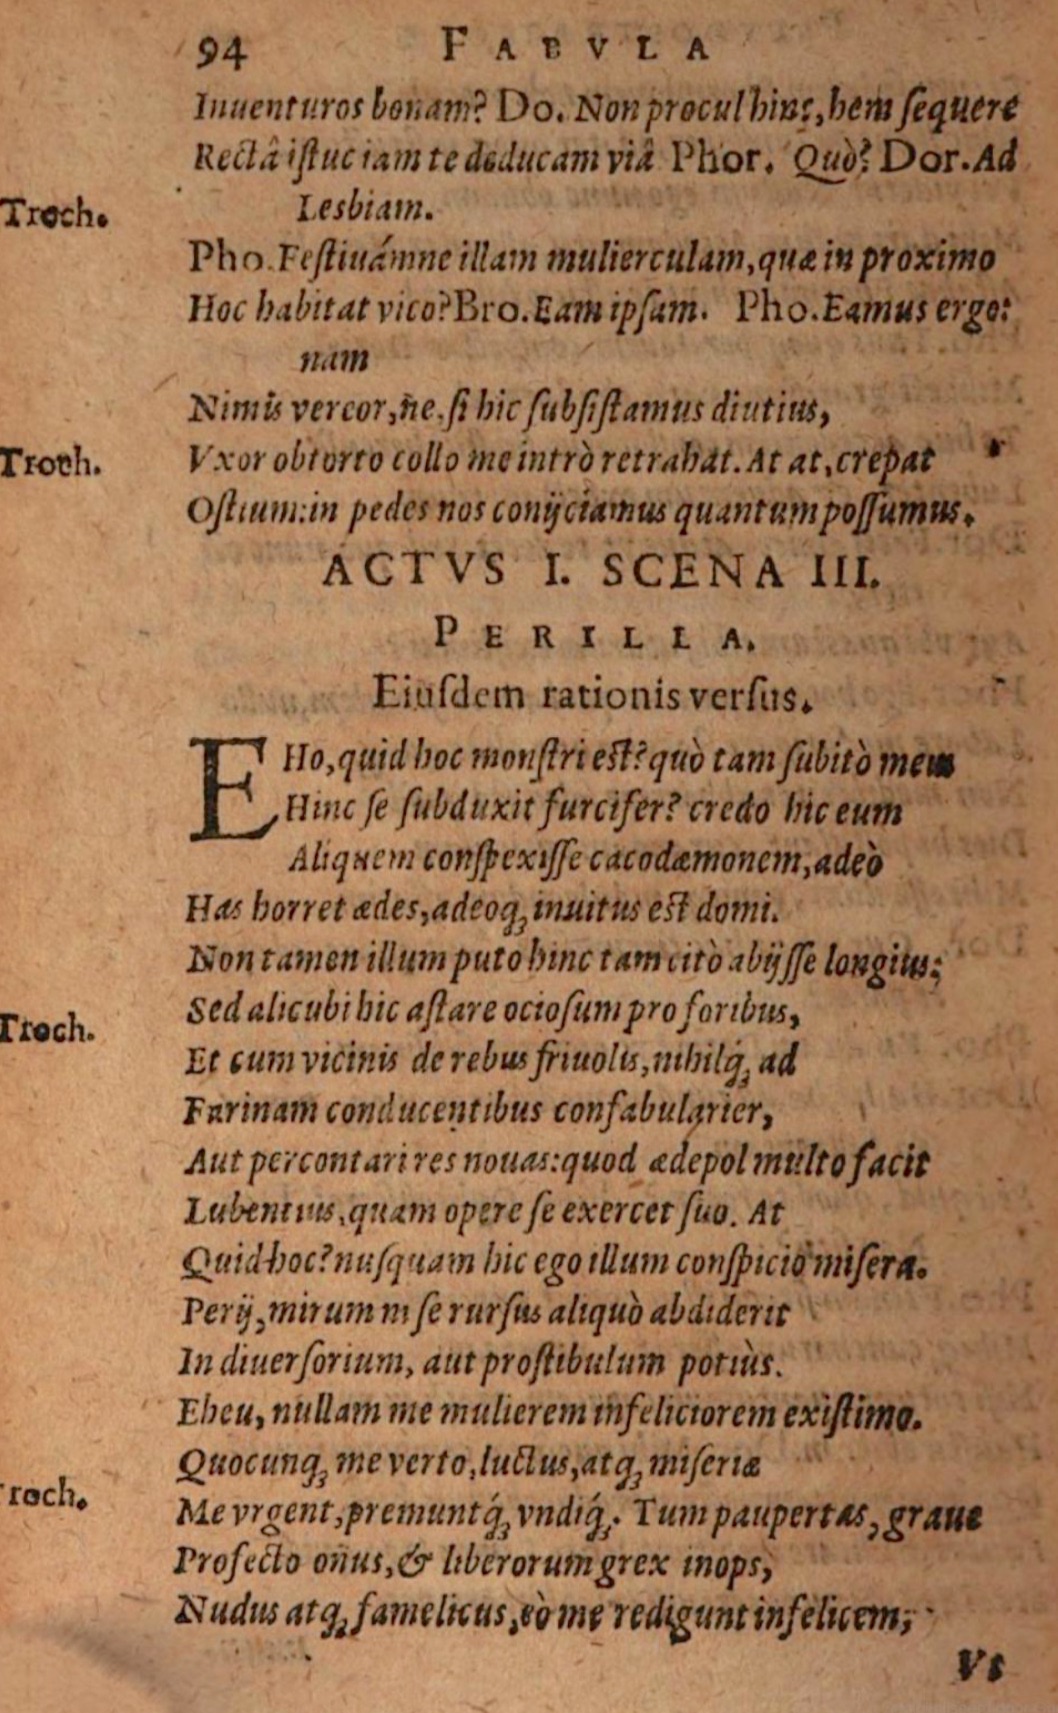 94 FABVLA
Inuenturos bonam? Do. Non procul hinc, hem ſequere
Rectâ iſtuc iam te deducam viâ Phor. Quò? Dor. Ad
Troch. Lesbiam.
Pho. Feſtiuámne illam mulierculam, quæ in proximo
Hoc habitat vico? Bro. Eam ipſam. Pho. Eamus ergo:
nam
Nimis vereor, ne, ſi hic ſubſiſtamus diutius,
Troch. Vxor obtorto collo me intrò retrahat. At at, crepat
Oſtium: in pedes nos conijciamus quantum poſſumus.
ACTVS I. SCENA III.
PERILLA.
Eiuſdem rationis verſus.
EHo, quid hoc monſtri eſt? quò tam ſubitò meus
Hinc ſe ſubduxit furcifer? credo hic eum
Aliquem conſpexiſſe cacodæmonem, adeò
Has horret ædes, adeoq; inuitus eſt domi.
Non tamen illum puto hinc tam citò abijſſe longius:
Sed alicubi hic aſtare ocioſum pro foribus,
Troch. Et cum vicinis de rebus friuolis, nihilq́; ad
Farinam conducentibus confabularier,
Aut percontari res nouas: quod ædepol multo facit
Lubentius, quam opere ſe exercet ſuo. At
Quid hoc? nuſquam hic ego illum conſpicio miſera.
Perij, mirum ni ſe rurſus aliquò abdiderit
In diuerſorium, aut proſtibulum potiùs.
Eheu, nullam me mulierem infeliciorem exiſtimo.
Quocunq; me verto, luctus, atq; miſeriæ
Troch. Me vrgent, premuntq́; vndiq́;. Tum paupertas, graue
Profecto onus, & liberorum grex inops,
Nudus atq; famelicus, eò me redigunt infelicem,
Vt